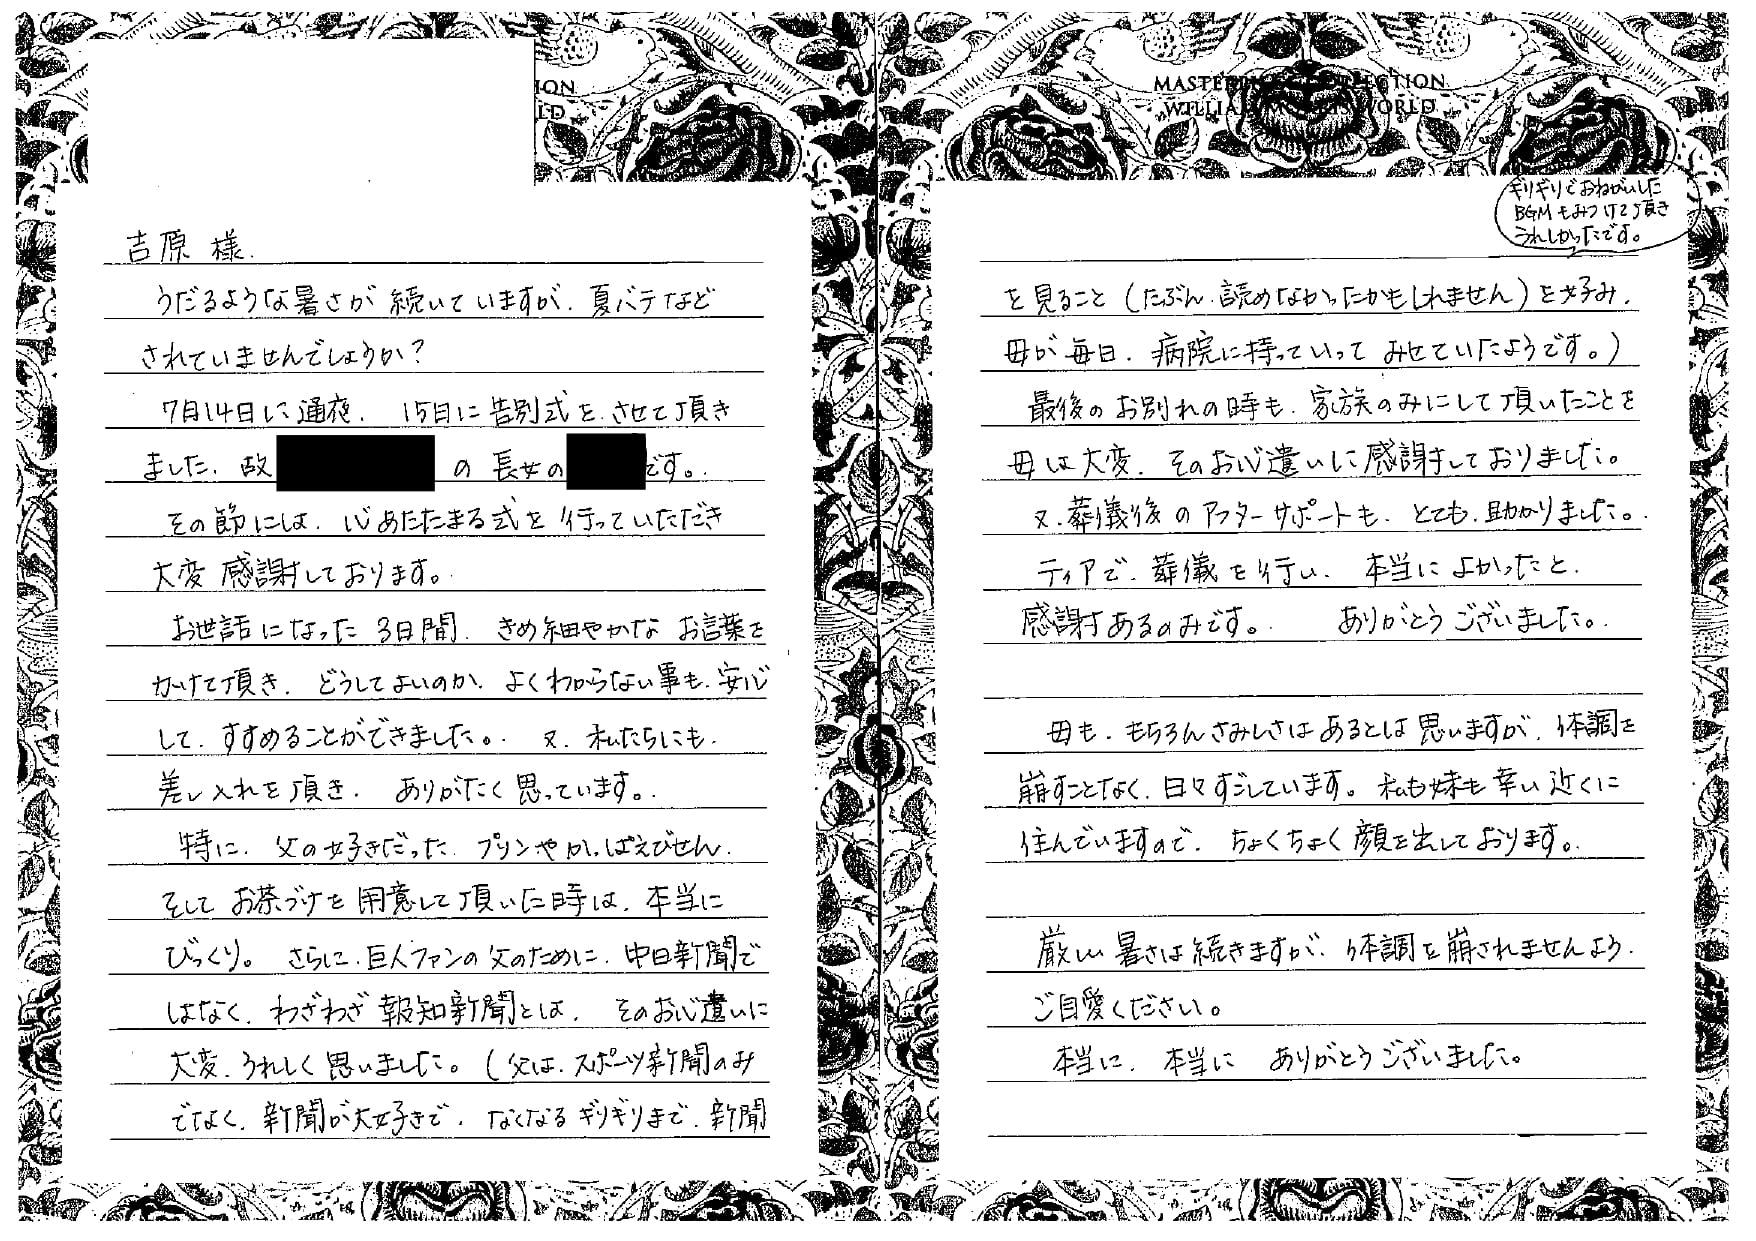 ION
LD
吉原 様.
うだるような暑さが 続いていますが、夏バテなど
されていませんでしょうか？
7月14日に通夜、15日に告別式を、させて頂き
ました、故 の 長女の です。
その節には、心あたたまる式を 行っていただき
大変 感謝しております。
お世話になった 3日間、きめ細やかな お言葉を
かけて頂き、どうしてよいのか、よくわからない事も、安心
して、すすめることができました。又、私たちにも、
差し入れを頂き、ありがたく思っています。
特に、父の好きだった プリンや かっぱえびせん、
そして お茶づけを 用意して頂いた時は、本当に
びっくり。さらに、巨人ファンの父のために、中日新聞で
はなく、わざわざ 報知新聞とは、そのお心遣いに
大変、うれしく思いました。(父は、スポーツ新聞のみ
でなく、新聞が大好きで、なくなるギリギリまで、新聞
MASTERPIECE COLLECTION
WILLIAM MORRIS WORLD
ギリギリでおねがいした
BGMもみつけて頂き
うれしかったです。
を見ること(たぶん、読めなかったかもしれません)を好み、
母が毎日、病院に持っていって みせていたようです。)
最後のお別れの時も、家族のみにして頂いたことを
母は大変、そのお心遣いに感謝しておりました。
又、葬儀後のアフターサポートも、とても、助かりました。
ティアで、葬儀を行い、本当によかったと、
感謝あるのみです。ありがとうございました。
母も、もちろんさみしさはあるとは思いますが、体調を
崩すことなく、日々すごしています。私も妹も幸い近くに
住んでいますので、ちょくちょく顔を出しております。
厳しい暑さは続きますが、体調を崩されませんよう、
ご自愛ください。
本当に、本当に ありがとうございました。